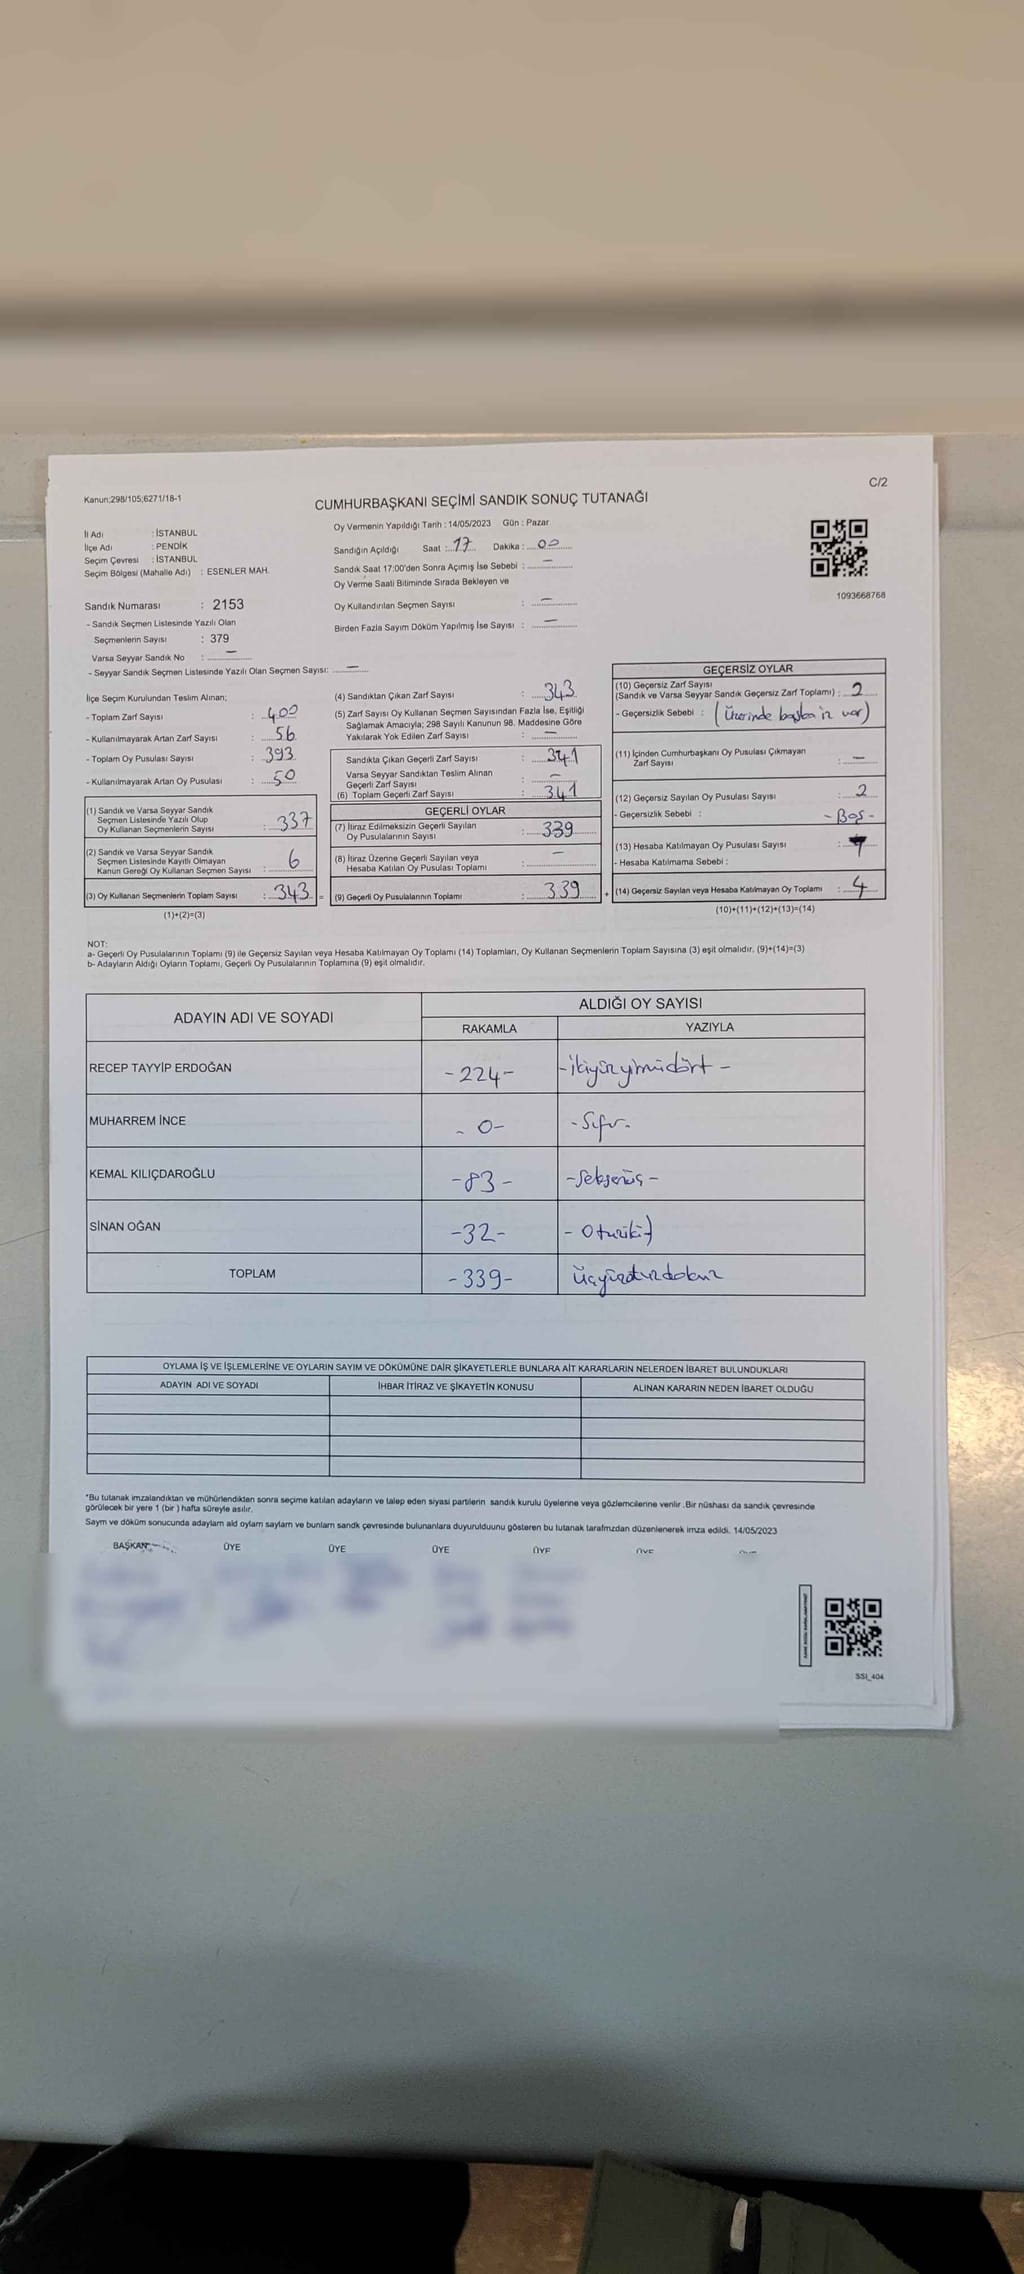 Kanun;298/105;6271/18-1
C/2
CUMHURBAŞKANI SEÇİMİ SANDIK SONUÇ TUTANAĞI
İl Adı : İSTANBUL
İlçe Adı : PENDİK
Seçim Çevresi : İSTANBUL
Seçim Bölgesi (Mahalle Adı) : ESENLER MAH.
Oy Vermenin Yapıldığı Tarih : 14/05/2023 Gün : Pazar
Sandığın Açıldığı Saat : 17 Dakika : 00
Sandık Saat 17:00'den Sonra Açımış İse Sebebi : —
Oy Verme Saati Bitiminde Sırada Bekleyen ve
Oy Kullandırılan Seçmen Sayısı : —
Birden Fazla Sayım Döküm Yapılmış İse Sayısı : —
1093668768
Sandık Numarası : 2153
- Sandık Seçmen Listesinde Yazılı Olan
Seçmenlerin Sayısı : 379
Varsa Seyyar Sandık No : —
- Seyyar Sandık Seçmen Listesinde Yazılı Olan Seçmen Sayısı: —
İlçe Seçim Kurulundan Teslim Alınan;
- Toplam Zarf Sayısı : 400
- Kullanılmayarak Artan Zarf Sayısı : 56
- Toplam Oy Pusulası Sayısı : 393
- Kullanılmayarak Artan Oy Pusulası : 50
(1) Sandık ve Varsa Seyyar Sandık
Seçmen Listesinde Yazılı Olup
Oy Kullanan Seçmenlerin Sayısı : 337
(2) Sandık ve Varsa Seyyar Sandık
Seçmen Listesinde Kayıtlı Olmayan
Kanun Gereği Oy Kullanan Seçmen Sayısı : 6
(3) Oy Kullanan Seçmenlerin Toplam Sayısı : 343 =
(1)+(2)=(3)
(4) Sandıktan Çıkan Zarf Sayısı : 343
(5) Zarf Sayısı Oy Kullanan Seçmen Sayısından Fazla İse, Eşitliği
Sağlamak Amacıyla; 298 Sayılı Kanunun 98. Maddesine Göre
Yakılarak Yok Edilen Zarf Sayısı : —
Sandıkta Çıkan Geçerli Zarf Sayısı : 341
Varsa Seyyar Sandıktan Teslim Alınan
Geçerli Zarf Sayısı : —
(6) Toplam Geçerli Zarf Sayısı : 341
GEÇERLİ OYLAR
(7) İtiraz Edilmeksizin Geçerli Sayılan
Oy Pusulalarının Sayısı : 339
(8) İtiraz Üzerine Geçerli Sayılan veya
Hesaba Katılan Oy Pusulası Toplamı : —
(9) Geçerli Oy Pusulalarının Toplamı : 339 +
GEÇERSİZ OYLAR
(10) Geçersiz Zarf Sayısı
(Sandık ve Varsa Seyyar Sandık Geçersiz Zarf Toplamı) : 2
- Geçersizlik Sebebi : (Üzerinde başka iz var)
(11) İçinden Cumhurbaşkanı Oy Pusulası Çıkmayan
Zarf Sayısı : —
(12) Geçersiz Sayılan Oy Pusulası Sayısı : 2
- Geçersizlik Sebebi : - Boş -
(13) Hesaba Katılmayan Oy Pusulası Sayısı :
- Hesaba Katılmama Sebebi :
(14) Geçersiz Sayılan veya Hesaba Katılmayan Oy Toplamı : 4
(10)+(11)+(12)+(13)=(14)
NOT:
a- Geçerli Oy Pusulalarının Toplamı (9) ile Geçersiz Sayılan veya Hesaba Katılmayan Oy Toplamı (14) Toplamları, Oy Kullanan Seçmenlerin Toplam Sayısına (3) eşit olmalıdır. (9)+(14)=(3)
b- Adayların Aldığı Oyların Toplamı, Geçerli Oy Pusulalarının Toplamına (9) eşit olmalıdır.
ADAYIN ADI VE SOYADI
ALDIĞI OY SAYISI
RAKAMLA YAZIYLA
RECEP TAYYİP ERDOĞAN -224- -ikiyüzyirmidört-
MUHARREM İNCE -0- -Sıfır-
KEMAL KILIÇDAROĞLU -83- -Seksenüç-
SİNAN OĞAN -32- -Otuziki-
TOPLAM -339- Üçyüzotuzdokuz
OYLAMA İŞ VE İŞLEMLERİNE VE OYLARIN SAYIM VE DÖKÜMÜNE DAİR ŞİKAYETLERLE BUNLARA AİT KARARLARIN NELERDEN İBARET BULUNDUKLARI
ADAYIN ADI VE SOYADI İHBAR İTİRAZ VE ŞİKAYETİN KONUSU ALINAN KARARIN NEDEN İBARET OLDUĞU
*Bu tutanak imzalandıktan ve mühürlendikten sonra seçime katılan adayların ve talep eden siyasi partilerin sandık kurulu üyelerine veya gözlemcilerine verilir .Bir nüshası da sandık çevresinde
görülecek bir yere 1 (bir ) hafta süreyle asılır.
Saym ve döküm sonucunda adaylarn ald oylarn saylarn ve bunlarn sandk çevresinde bulunanlara duyurulduunu gösteren bu tutanak tarafmzdan düzenlenerek imza edildi. 14/05/2023
BAŞKAN ÜYE ÜYE ÜYE ÜYE ÜYE
SSI_404